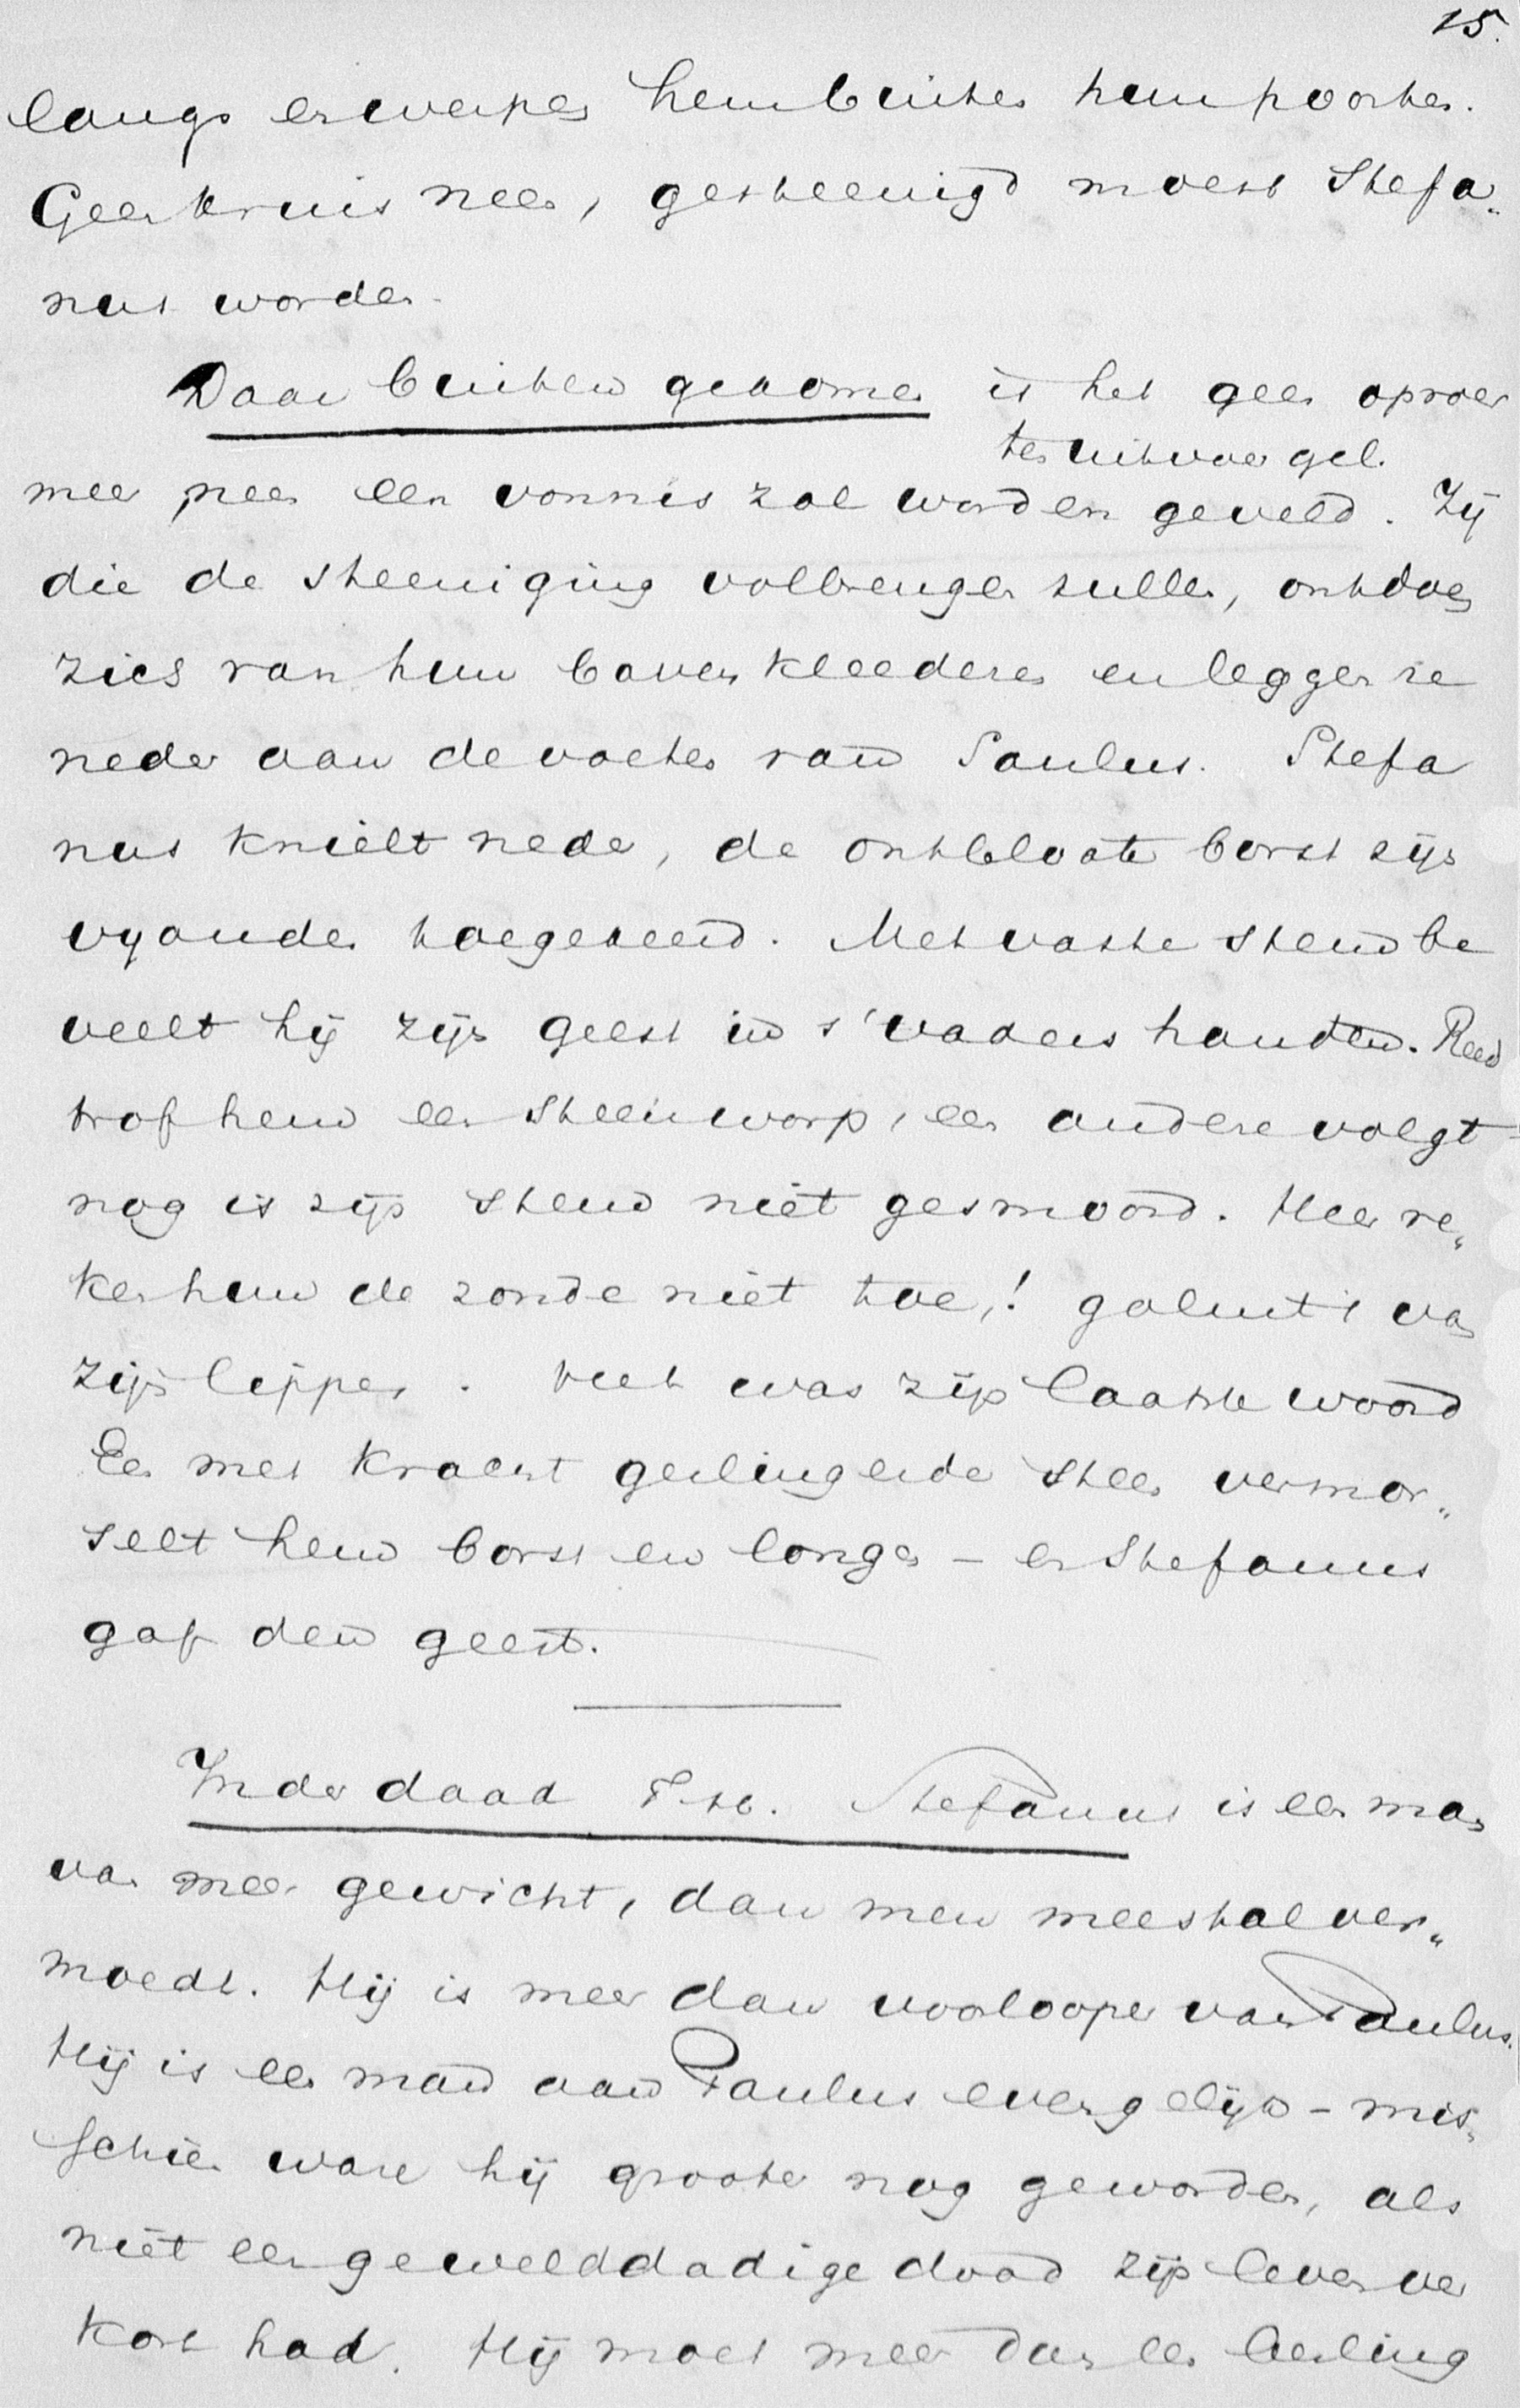 15.
langs en werpen hem buiten hun poorten.
Geen kruis neen, gesteenigd moest Stefa„
nus worden.
Daar buiten gekomen is het geen oproer
ten uitvoer gel.
meer neen een vonnis zal worden geveld. Zij
die de steeniging volbrengen zullen, ontdoen
zich van hun bovenkleederen en leggen ze
neder aan de voeten van Saulus. Stefa
nus knielt neder, de ontbloote borst zijn
vyanden toegekeerd. Met vaste stem be
veelt hij zijn geest in s'vaders handen. Reed
trof hem een steenworp, een andere volgt –
nog is zijn stem niet gesmoord. Heer re„
ken hun de zonde niet toe,! galmt 't van
zijn lippen. Het was zijn laatste woord
Een met kracht geslingerde steen vermor„
selt hem borst en longen – en Stefanus
gaf den geest.
Inderdaad Stefanus is een man
van meer gewicht, dan men meestal ver„
moedt. Hij is meer dan voorlooper van Paulus.
Hij is een man aan Paulus evengelijk – mis„
schien ware hij grooter nog geworden, als
niet een gewelddadige dood zijn leven ver
kort had. Hij moet meer dan een leerling